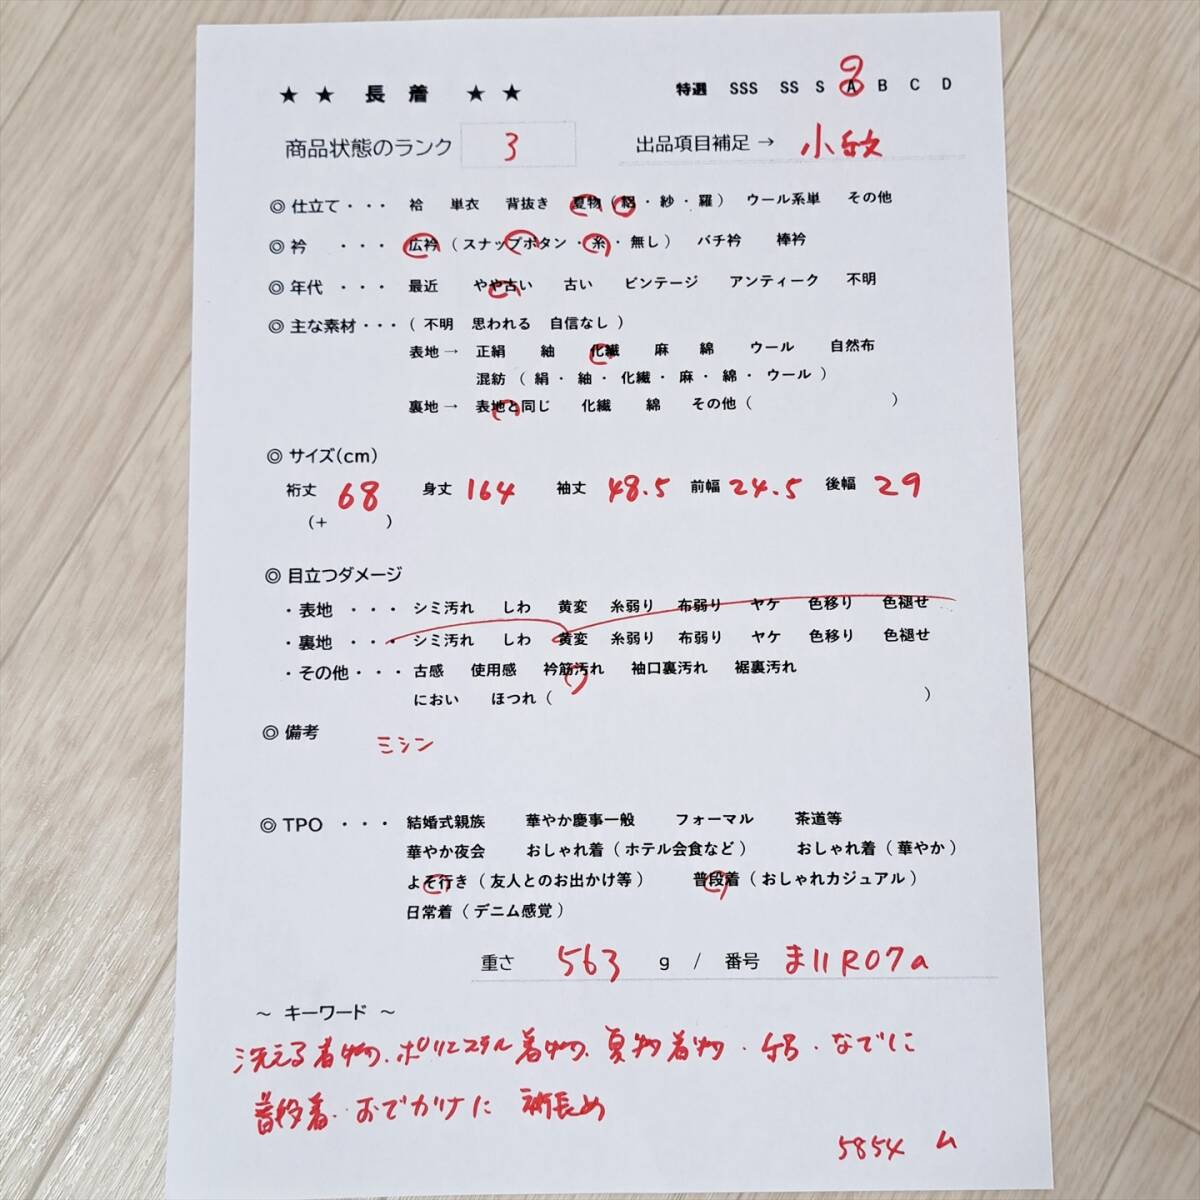 ★ ★ 長 着 ★ ★ 特選 SSS SS S A B C D
商品状態のランク 3 出品項目補足 → 小紋
◎ 仕立て・・・ 袷 単衣 背抜き 夏物 ( 絽 ・ 紗 ・ 羅 ) ウール系単 その他
◎ 衿 ・・・ 広衿 ( スナップボタン ・ 糸 ・ 無し ) バチ衿 棒衿
◎ 年代 ・・・ 最近 やや古い 古い ビンテージ アンティーク 不明
◎ 主な素材・・・ ( 不明 思われる 自信なし )
表地 → 正絹 紬 化繊 麻 綿 ウール 自然布
混紡 ( 絹 ・ 紬 ・ 化繊 ・ 麻 ・ 綿 ・ ウール )
裏地 → 表地と同じ 化繊 綿 その他 ( )
◎ サイズ(cm)
裄丈 68 身丈 164 袖丈 48.5 前幅 24.5 後幅 29
(+ )
◎ 目立つダメージ
・表地 ・・・ シミ汚れ しわ 黄変 糸弱り 布弱り ヤケ 色移り 色褪せ
・裏地 ・・・ シミ汚れ しわ 黄変 糸弱り 布弱り ヤケ 色移り 色褪せ
・その他・・・ 古感 使用感 衿筋汚れ 袖口裏汚れ 裾裏汚れ
におい ほつれ ( )
◎ 備考 ミシン
◎ TPO ・・・ 結婚式親族 華やか慶事一般 フォーマル 茶道等
華やか夜会 おしゃれ着 ( ホテル会食など ) おしゃれ着 ( 華やか )
よそ行き ( 友人とのお出かけ等 ) 普段着 ( おしゃれカジュアル )
日常着 ( デニム感覚 )
重さ 563 g / 番号 ま11R07a
～ キーワード ～
洗える着物、ポリエステル着物、夏物着物・絽・なでに
普段着・おでかけに 裄長め
5854 ム